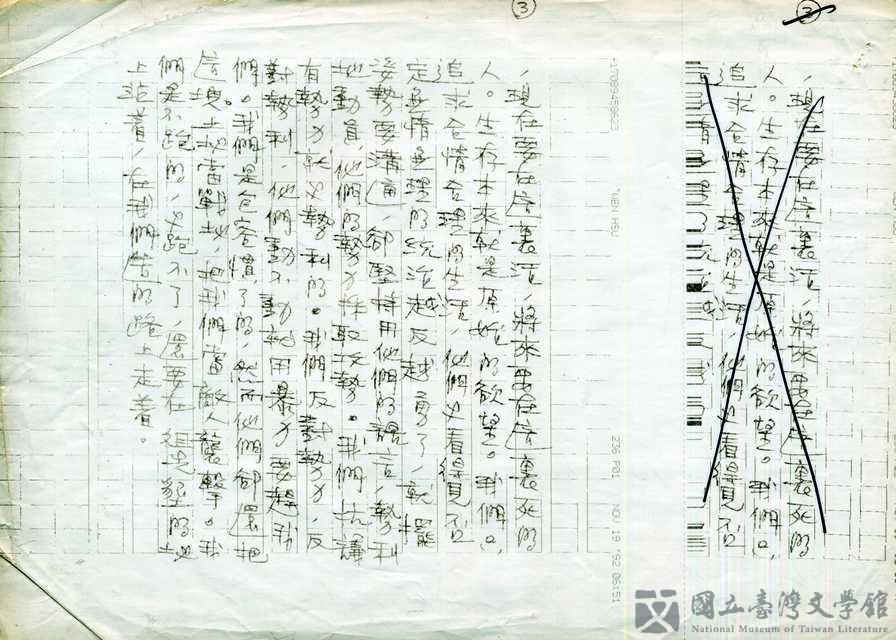 ③
③
，現在要在這裏活，將來要在這裏死的
人。生存本來就是原始的欲望。我們只
追求合情合理的生活，他們也看得見否
，現在要在這裏活，將來要在這裏死的
人。生存本來就是原始的欲望。我們只
追求合情合理的生活，他們也看得見否
定無情無理的統治越反越勇了，就擺
姿勢要溝通，卻堅持用他們的語言，勢利
地動員，他們的勢力採取攻勢。我們抗議
有勢力就必勢利的。我們反對勢力，反
對勢利，他們動不動就用暴力要趕我
們。我們是包容慣了的，然而他們卻還把
這塊土地當戰地，把我們當敵人襲擊。我
們是不跑的，也跑不了，還要在祖先墾的土
上站著，在我們苦的路上走著。
+17089459623
WEN HSU
236 P01
NOV 19 '92 06:51
國立臺灣文學館
National Museum of Taiwan Literature